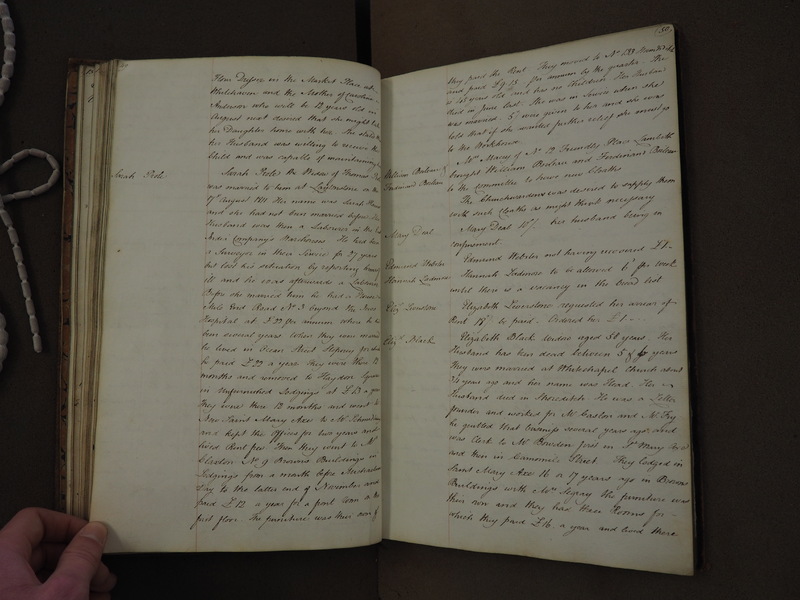 Flour Dresser in the Market Place at
Whitehaven and the Mother of Caroline
Anderson who will be 12 years old in
August next desired that she might take
her Daughter home with her. She stated
her Husband was willing to receive the
Child and was capable of maintaining
Sarah Peele
Sarah Peele the Widow of Thomas Peele
was married to him at on the
17th August 1811 Her name was Sarah
and she had not been married before. Her
Husband was then a Labourer in the East
India Company's Warehouses. He had been
a Surveyor in their Service for 27 years
but lost his situation by reporting himself
ill and he was afterwards a Labourer
Before she married him he had a House in
Mile End Road No 3 beyond the Jews
Hospital at £22 per annum where he had
been several years. When they were married
he lived in Ocean Street Stepney for which
he paid £22 a year. They were there 12
months and removed to Haydon Square
in Unfurnished Lodgings at £13 a year
They were there 12 months and went to
New Saint Mary Axe to Mr
and kept the Offices for two years and
lived Rent free. Then they went to Mr
Claxton No 9 Browns Buildings in
Lodgings from a month before Michaelmas
Day to the latter end of November and
paid £12 a year for a front room on the
first floor. The furniture was their own &
150
they paid the Rent. They moved to No
and paid £9.. 15.. per annum by the quarter. She
is 48 years old and has no children. Her Husband
died in June last. She was in Service when she
was married. 5/ was given to her and she was
told that if she wanted further relief she must go
to the Workhouse.
William Boelem &
Ferdinand Boelem
Mrs Macey of No 12 Friendly Place Lambeth
brought William Boelem and Ferdinand Boelem
to the committee to have new Cloaths
The Churchwardens was desired to supply them
with such Cloaths as might think necessary
Mary Deal
Mary Deal 10/. her husband being in
confinement.
Edmund Webster
Edmund Webster not having recovered £1-
Hannah Ladmore
Hannah Ladmore to be allowed 6/ per week
until there is a vacancy in the house
Elizth Limestone
Elizabeth Limestone requested her arrear of
Rent to be paid - Ordered her £1 - -
Elizth Black
Elizabeth Black widow aged 50 years. Her
Husband has been dead between 5 & 6 years
They were married at Whitechapel Church about
years ago and her name was Head. Her
Husband died in Shoreditch. He was a Letter
founder and worked for Mr Caslon and Mr Fry
he quitted that business several years ago, and
was Clerk to Mr Bowden first in St Mary Axe
and then in Camomile Street. They lodged in
Saint Mary Axe 16 or 17 years ago in Browns
Buildings with Mrs the furniture was
their own and they had three Rooms for
which they paid £16 a year and lived there